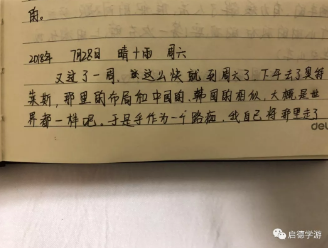 的。
2018年 7月28日 晴+雨 周六
又过了一周，这么快就到周六了，下午去了奥特
莱斯，那里的布局和中国的、韩国的相似，大概是世
界都一样吧。于是乎作为一个路痴，我自己将那里走了
deli
启德学游